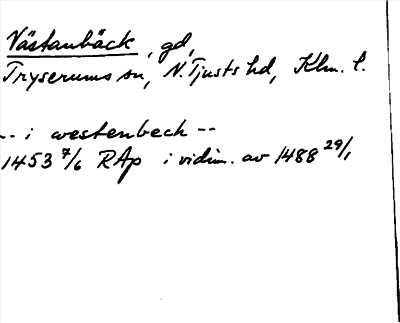 Västanbäck, gd,
Tryserums sn, N. Tjusts hd, Klm. l.
-- i westenbeck --
1453 7/6 RAp i vidim. av 1488 29/1